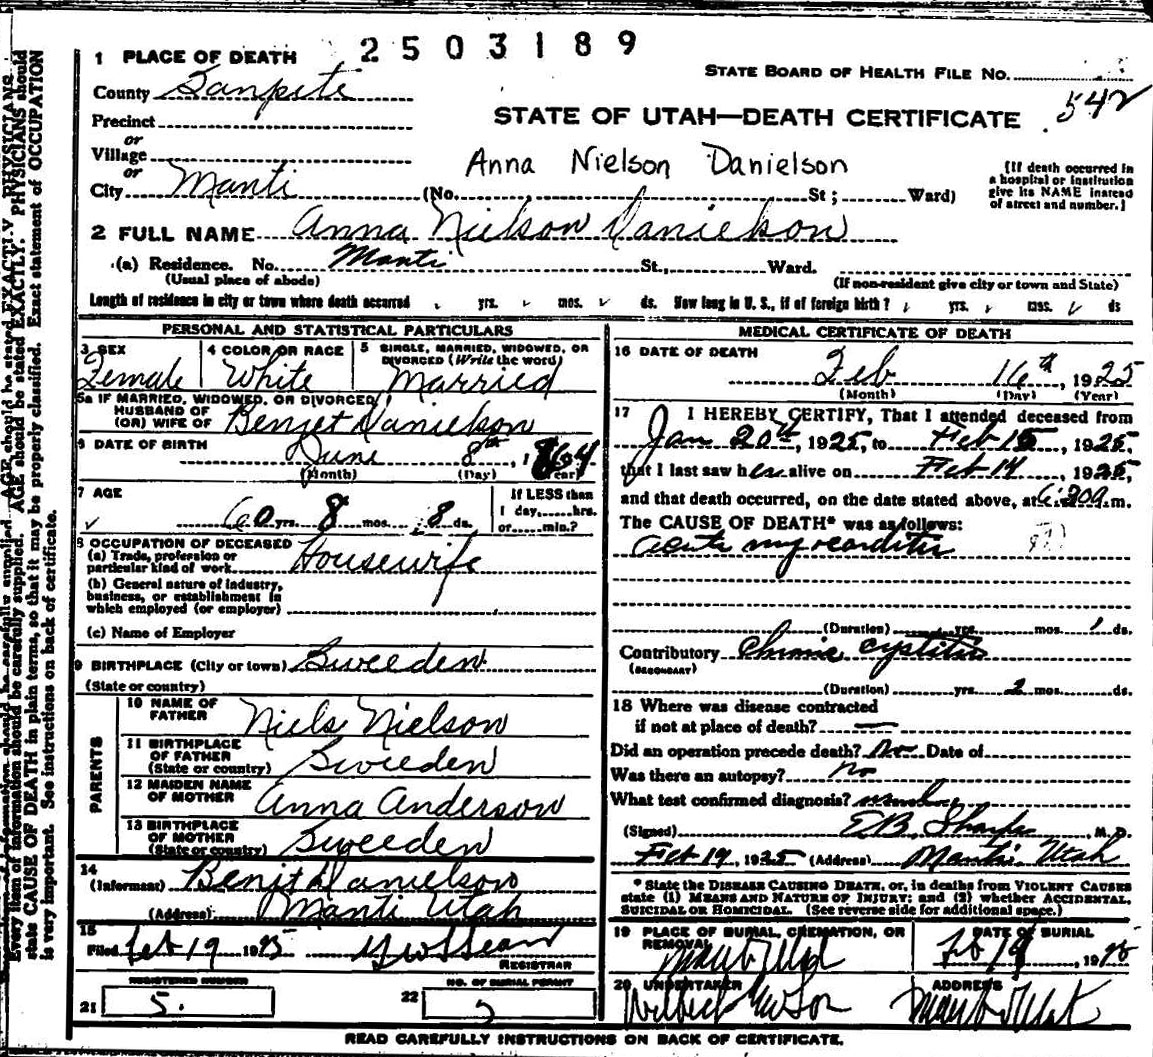 2503189
1 PLACE OF DEATH
STATE BOARD OF HEALTH FILE NO.
County Sanpete
542
Precinct
STATE OF UTAH—DEATH CERTIFICATE
or
Village
Anna Nielson Danielson
or
City Manti (No. St; Ward)
[If death occurred in a hospital or institution give its NAME instead of street and number.]
2 FULL NAME Anna Nielson Danielson
(a) Residence. No. Manti St., Ward.
(Usual place of abode) (If non-resident give city or town and State)
Length of residence in city or town where death occurred yrs. mos. ds. How long in U. S., if of foreign birth? yrs. mos. ds
PERSONAL AND STATISTICAL PARTICULARS
3 SEX
Female
4 COLOR OR RACE
White
5 SINGLE, MARRIED, WIDOWED, OR DIVORCED (Write the word)
Married
5a IF MARRIED, WIDOWED, OR DIVORCED
HUSBAND OF
(OR) WIFE OF Benjet Danielson
6 DATE OF BIRTH
June 8th, 1864
(Month) (Day) (Year)
7 AGE
60 yrs. 8 mos. 8 ds.
If LESS than
1 day, hrs.
or min.?
8 OCCUPATION OF DECEASED
(a) Trade, profession or
particular kind of work Housewife
(b) General nature of industry,
business, or establishment in
which employed (or employer)
(c) Name of Employer
9 BIRTHPLACE (City or town) Sweeden
(State or country)
PARENTS
10 NAME OF
FATHER Niels Nielson
11 BIRTHPLACE
OF FATHER
(State or country) Sweeden
12 MAIDEN NAME
OF MOTHER Anna Anderson
13 BIRTHPLACE
OF MOTHER
(State or country) Sweeden
14
(Informant) Benjt Danielson
(Address) Manti Utah
15
Filed Feb 19 1925
REGISTRAR
REGISTERED NUMBER
21 5.
NO. OF BURIAL PERMIT
22 5
MEDICAL CERTIFICATE OF DEATH
16 DATE OF DEATH
Feb 16th, 1925
(Month) (Day) (Year)
17 I HEREBY CERTIFY, That I attended deceased from
Jan 20th, 1925, to Feb 15, 1925,
that I last saw her alive on Feb 14, 1925,
and that death occurred, on the date stated above, at 6:30a m.
The CAUSE OF DEATH* was as follows:
acute myocarditis
(Duration) yrs. mos. 1 ds.
Contributory Chronic cystitis
(SECONDARY)
(Duration) yrs. 2 mos. ds.
18 Where was disease contracted
if not at place of death?
Did an operation precede death? No Date of
Was there an autopsy? no
What test confirmed diagnosis?
(Signed) , M. D.
Feb 19, 1925 (Address) Manti Utah
* State the DISEASE CAUSING DEATH, or, in deaths from VIOLENT CAUSES
state (1) MEANS AND NATURE OF INJURY; and (2) whether ACCIDENTAL,
SUICIDAL OR HOMICIDAL. (See reverse side for additional space.)
19 PLACE OF BURIAL, CREMATION, OR
REMOVAL
Manti Utah
DATE OF BURIAL
Feb 19, 1925
20 UNDERTAKER
ADDRESS
Manti Utah
READ CAREFULLY INSTRUCTIONS ON BACK OF CERTIFICATE.
Every item of information should be carefully supplied. AGE should be stated EXACTLY. PHYSICIANS should
state CAUSE OF DEATH in plain terms, so that it may be properly classified. Exact statement of OCCUPATION
is very important. See instructions on back of certificate.